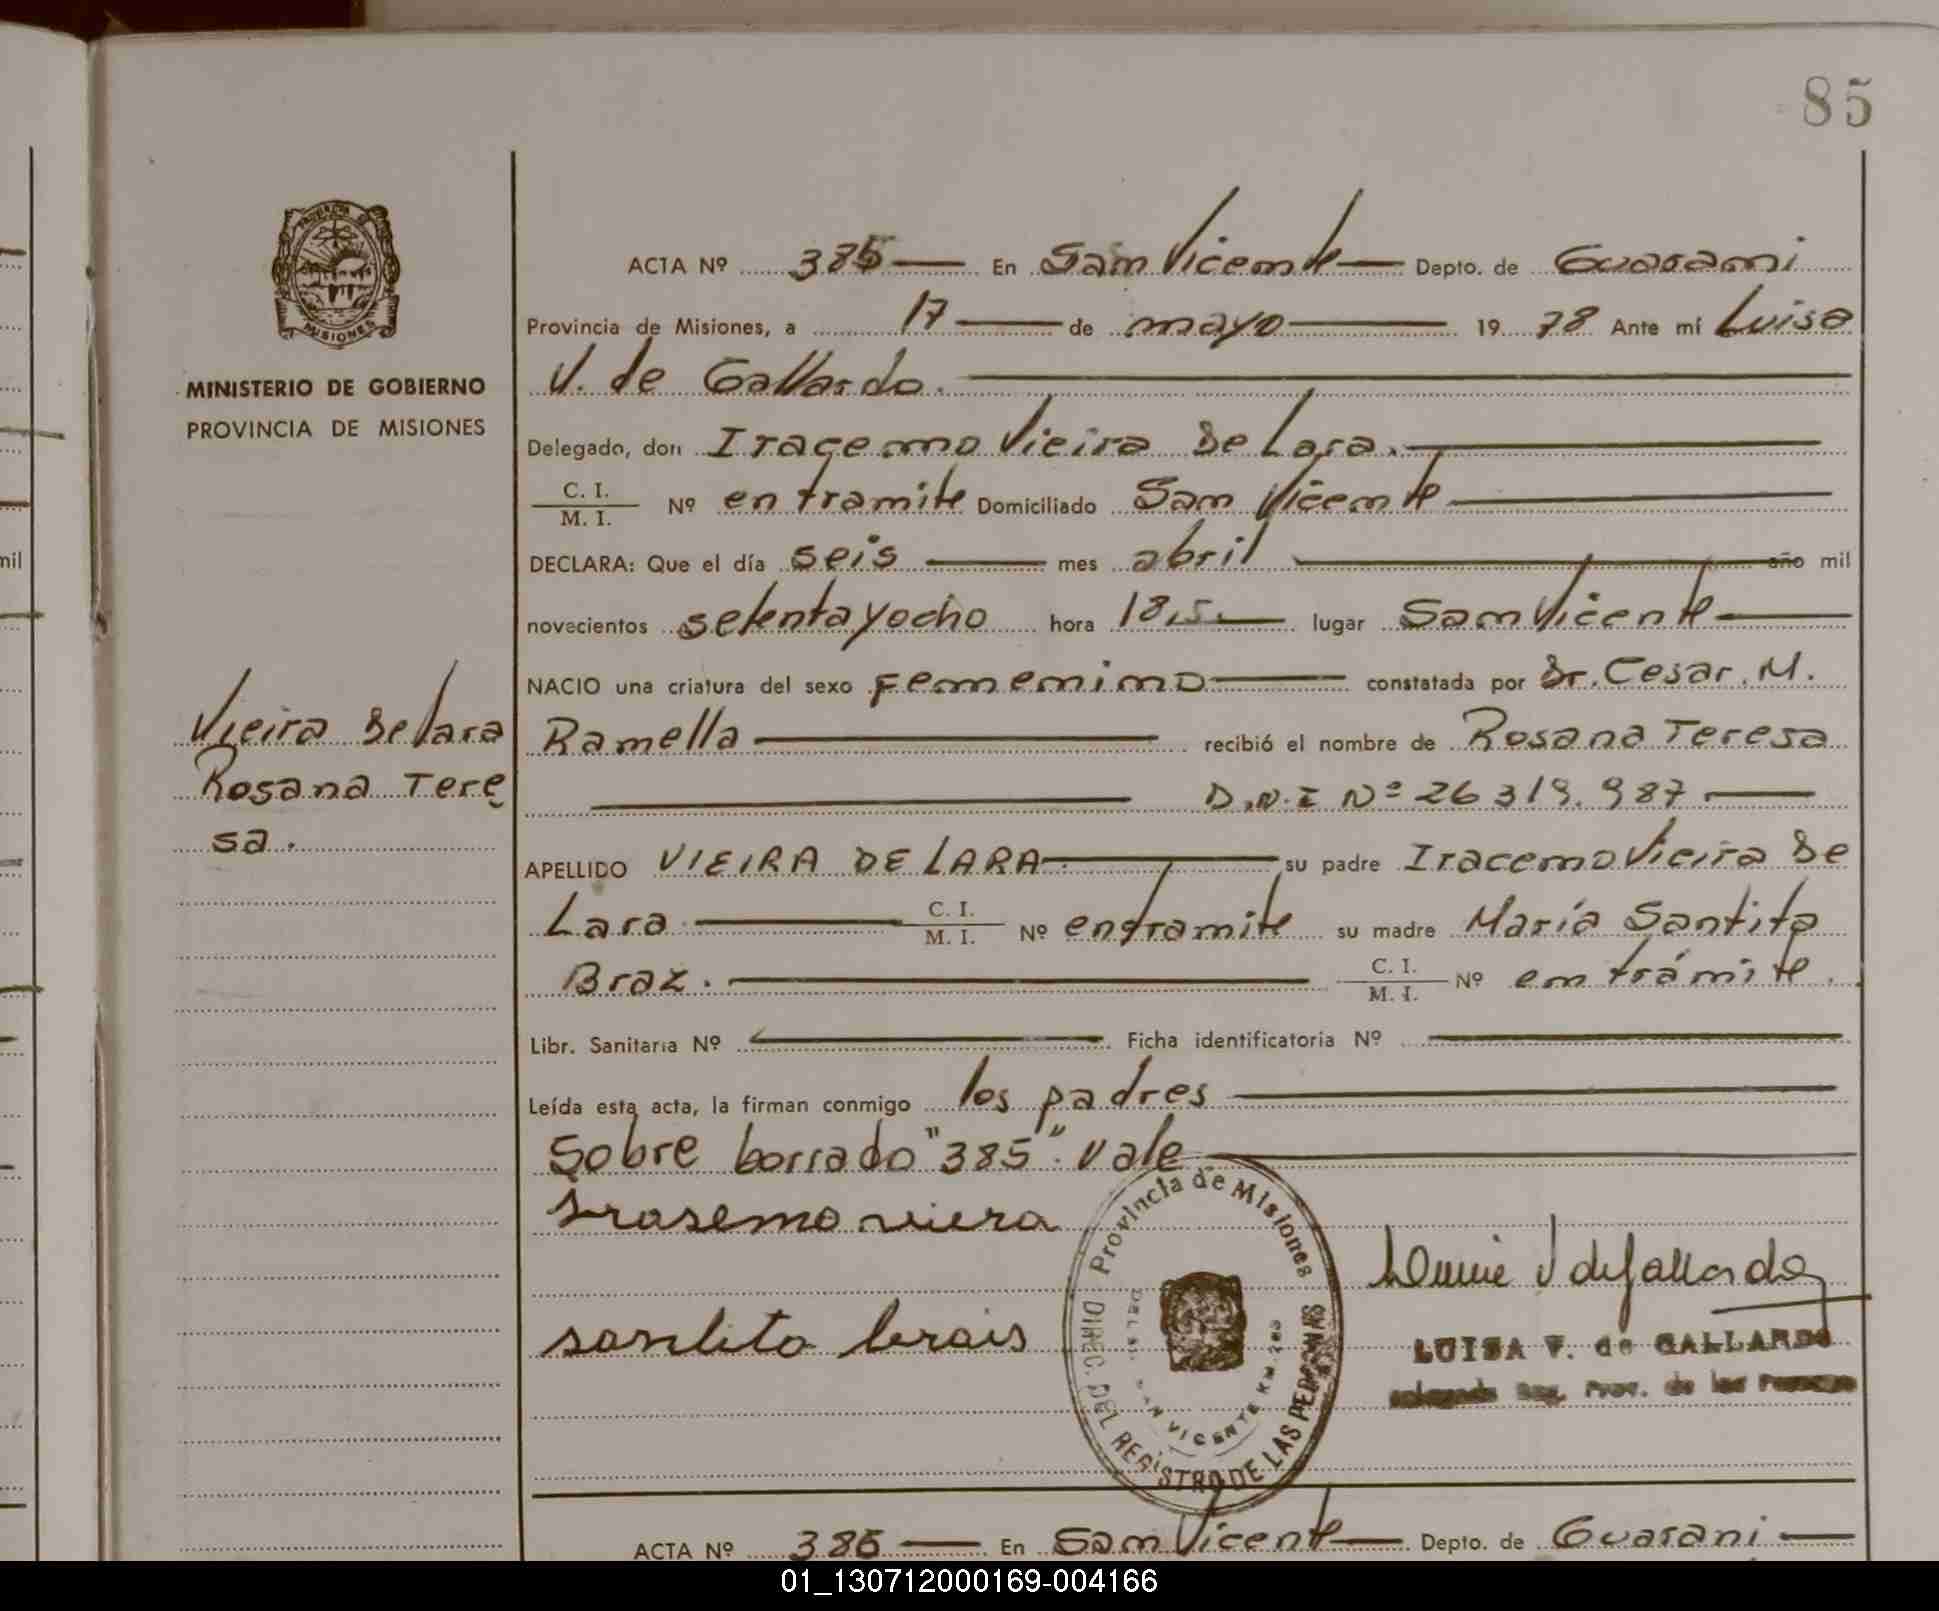 85
PROVINCIA DE
MISIONES
MINISTERIO DE GOBIERNO
PROVINCIA DE MISIONES
mil
Vieira De Lara
Rosana Tere
sa.
ACTA Nº 385 En San Vicente Depto. de Guarani
Provincia de Misiones, a 17 de mayo 1978 Ante mí Luisa
V. de Gallardo.
Delegado, don Iracemo Vieira De Lara.
C. I.
M. I. Nº en tramite Domiciliado San Vicente
DECLARA: Que el día seis mes abril año mil
novecientos setenta y ocho hora 18,5 lugar San Vicente
NACIO una criatura del sexo femenino constatada por Dr. Cesar. M.
Ramella recibió el nombre de Rosana Teresa
D.N.I Nº 26 319.987
APELLIDO VIEIRA DE LARA su padre Iracemo Vieira De
Lara C. I.
M. I. Nº en tramite su madre María Santita
Braz. C. I.
M. I. Nº en trámite.
Libr. Sanitaria Nº Ficha identificatoria Nº
Leída esta acta, la firman conmigo los padres
Sobre borrado "385". Vale
irasemo viera
santita brais
Provincia de Misiones
DIREC. DEL REGISTRO DE LAS PERSONAS
SAN VICENTE KM.
V de Gallardo
LUISA V. de GALLARDO
Reg. Prov. de las Personas
ACTA Nº 386 En San Vicente Depto. de Guarani
01_130712000169-004166